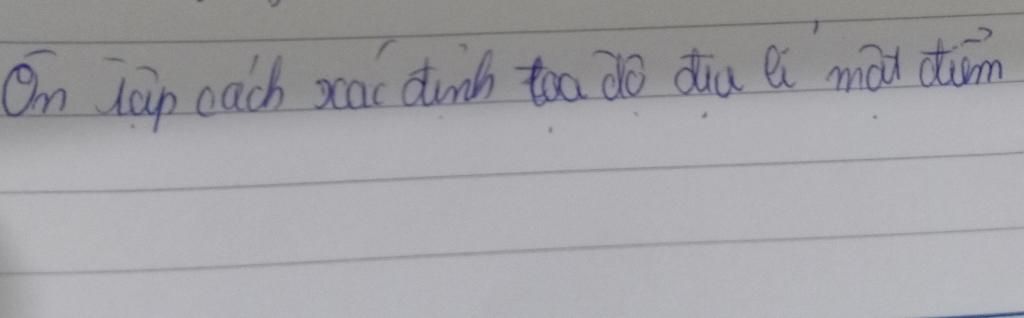 Ôn tập cách xác định toạ độ địa lí một điểm